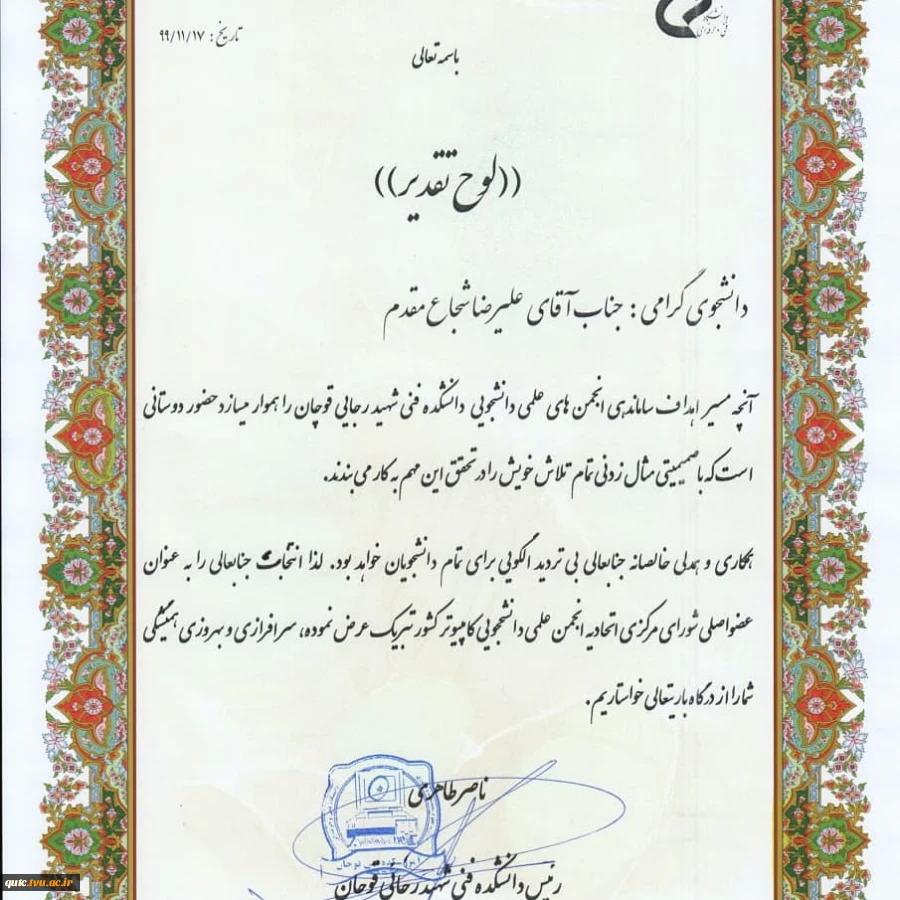 دانشگاه
فنی و حرفه‌ای
تاریخ: ۹۹/۱۱/۱۷
باسمه تعالی
((لوح تقدیر))
دانشجوی گرامی: جناب آقای علیرضا شجاع مقدم
آنچه مسیر اهداف ساماندهی انجمن های علمی دانشجویی دانشکده فنی شهید رجایی قوچان را هموار میسازد حضور دوستانی
است که با صمیمیتی مثال زدنی تمام تلاش خویش را در تحقق این مهم به کار می بندند.
همکاری و همدلی خالصانه جنابعالی بی تردید الگویی برای تمام دانشجویان خواهد بود. لذا انتخاب جنابعالی را به عنوان
عضو اصلی شورای مرکزی اتحادیه انجمن علمی دانشجویی کامپیوتر کشور تبریک عرض نموده، سرافرازی و بهروزی همیشگی
شما را از درگاه باریتعالی خواستاریم.
ناصر طاهری
رئیس دانشکده فنی شهید رجائی قوچان
qutc.tvu.ac.ir